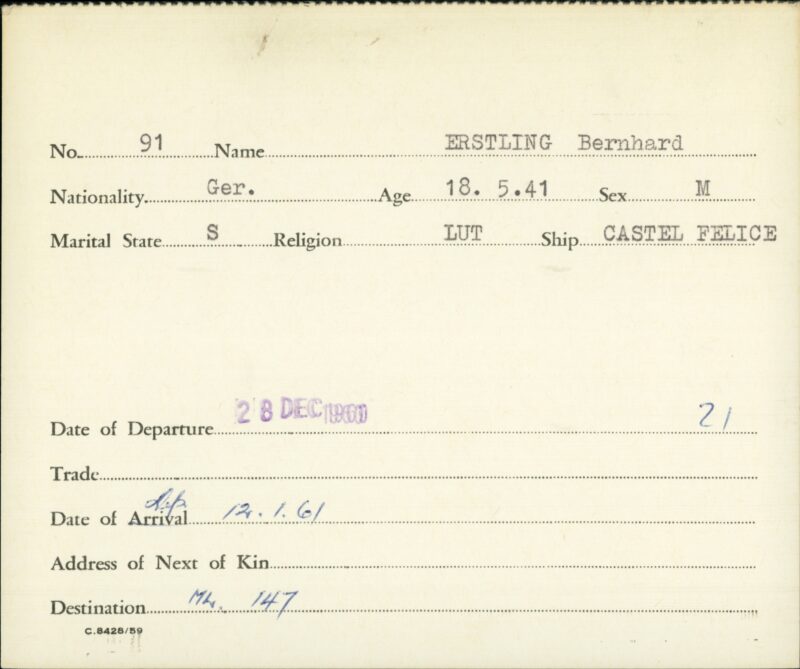 No. 91 Name ERSTLING Bernhard
Nationality Ger. Age 18. 5.41 Sex M
Marital State S Religion LUT Ship CASTEL FELICE
Date of Departure 28 DEC 1960 21
Trade
Dep.
Date of Arrival 12.1.61
Address of Next of Kin
Destination 147
C.8428/59